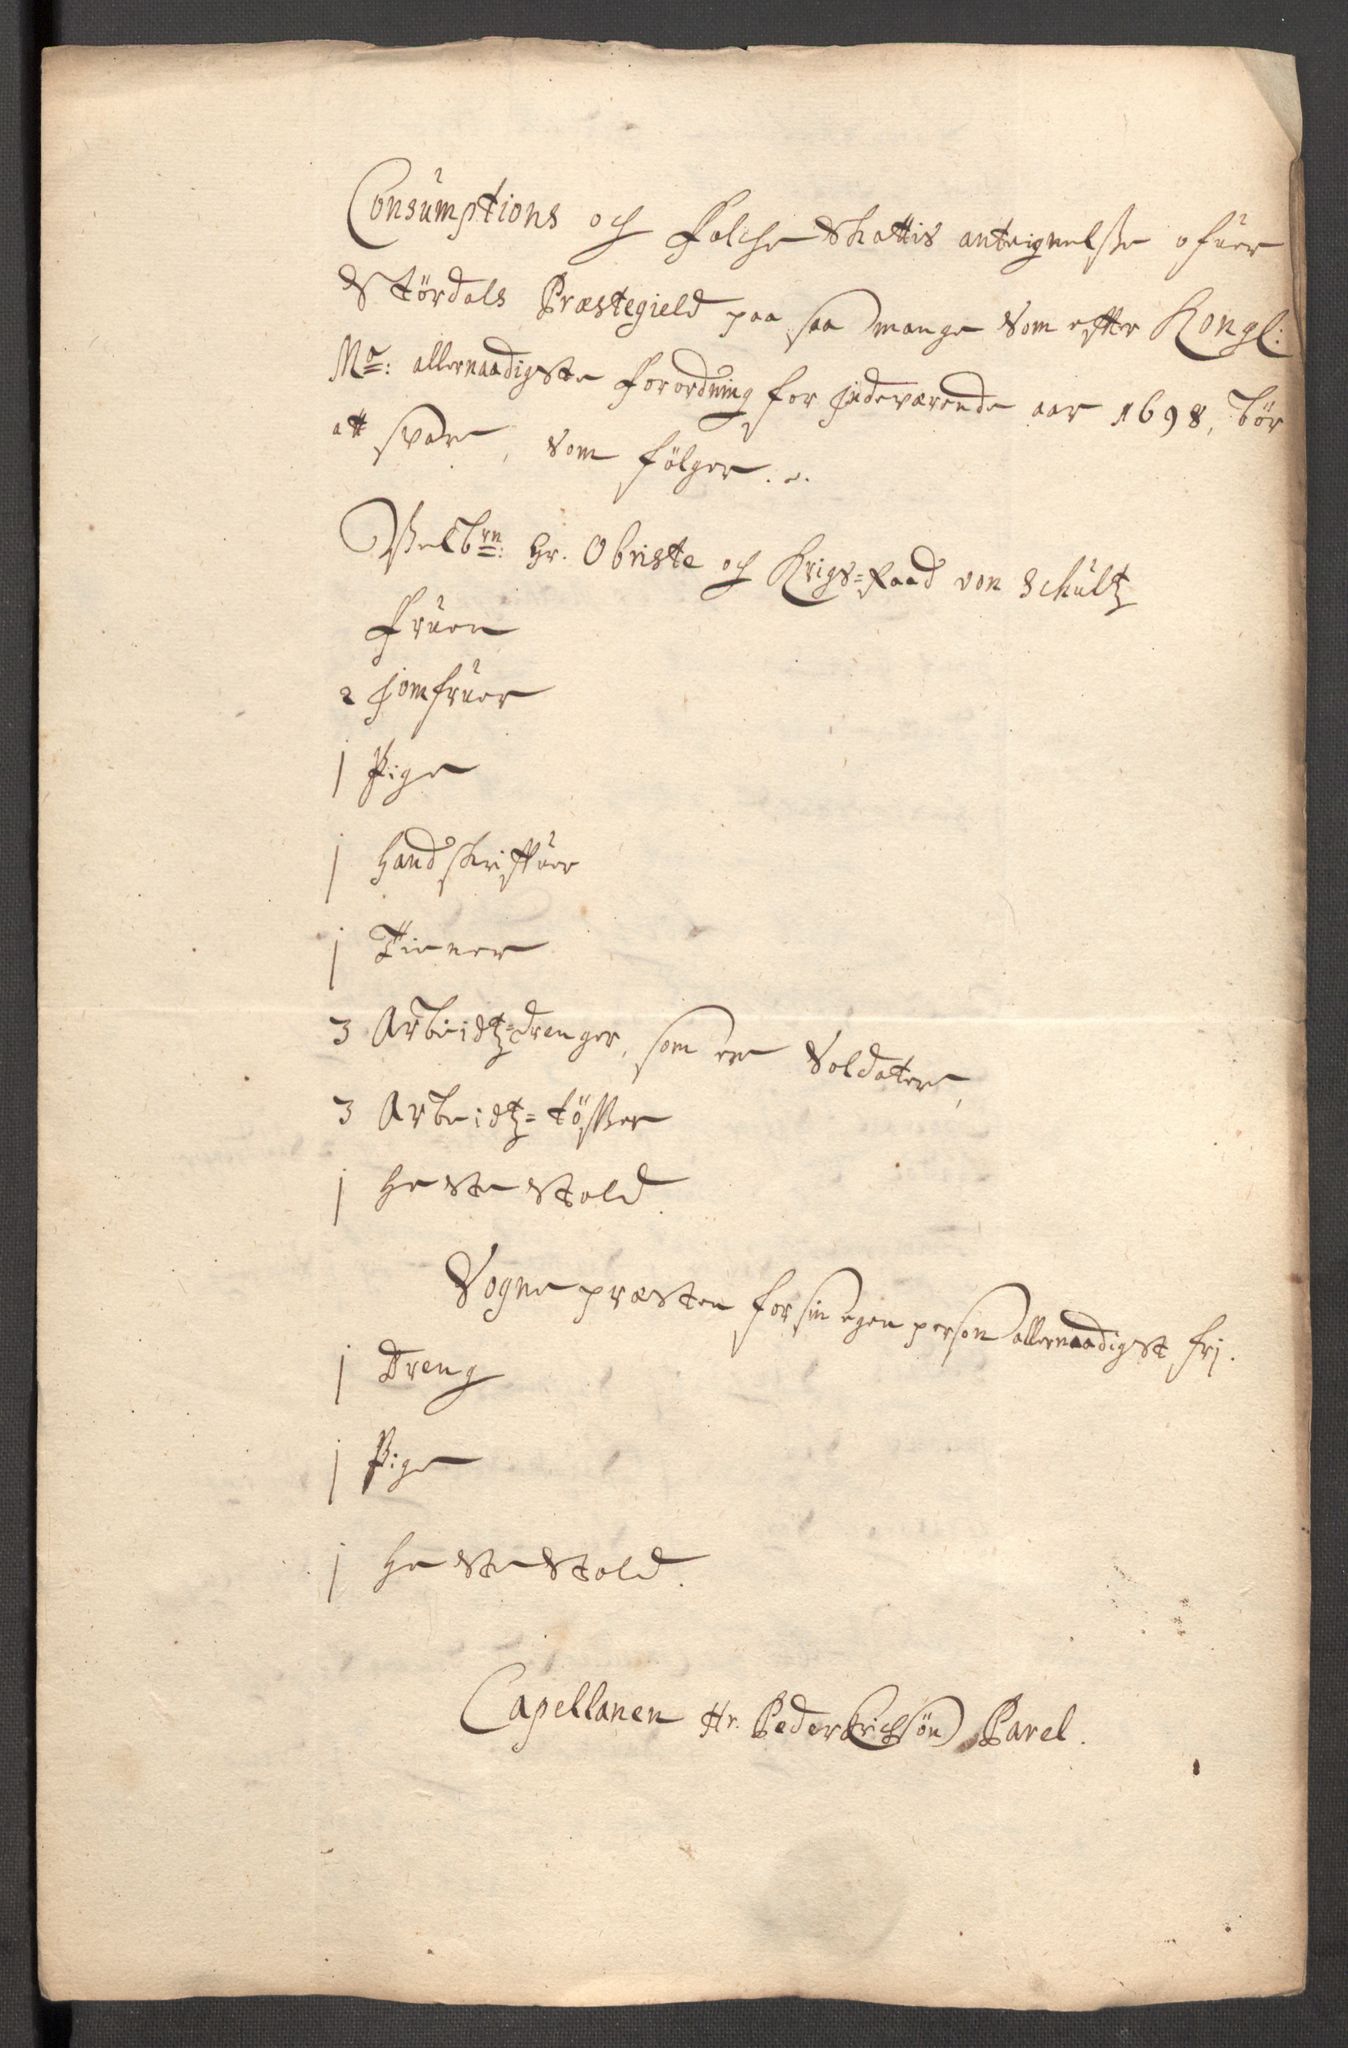 Consumptions och Folche Skattis anteignelsse ofuer
Størdals Præstegield paa saa mange Som efter Kongl:
Ma: allernaadigste forordning for Jndeværende aar 1698, bør
att svare, Som følger.
Welbrn: Hr. Obriste och Krigs=Raad von Schultz
Fruen
2 Jomfruer
1 Pige
1 Handskriffuer
1 Tiener
3 Arbeidtz=drenger, som er Soldatere,
3 Arbeidtz=tøsser
1 Heste Stald
Sogne præsten for sin egen person allernaadigst frj.
1 Dreng
1 Pige
1 Heste Stald.
Capellanen Hr. Peder Erichsøn Parel.